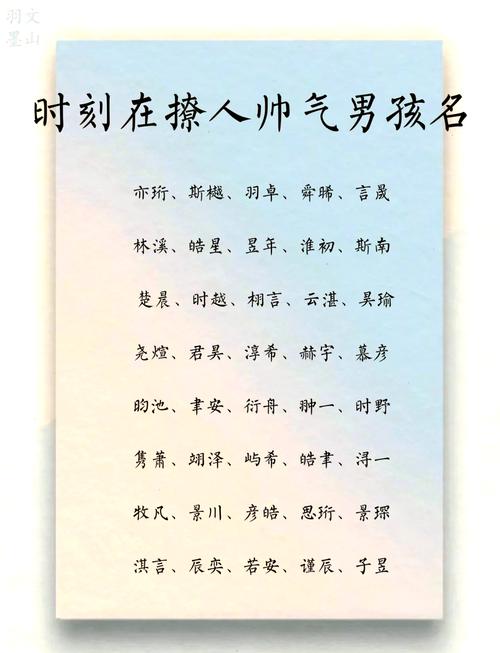 羽文
墨山
时刻在撩人帅气男孩名
亦珩、斯樾、羽卓、舜晞、言晟
林溪、皓星、昱年、淮初、斯南
楚晨、时越、栩言、云湛、昊瑜
尧煊、君昊、淳希、赫宇、慕彦
昀池、聿安、衍舟、翀一、时野
隽萧、翊泽、屿希、皓聿、浔一
牧凡、景川、彦皓、思珩、景琛
淇言、辰奕、若安、谨辰、子昱